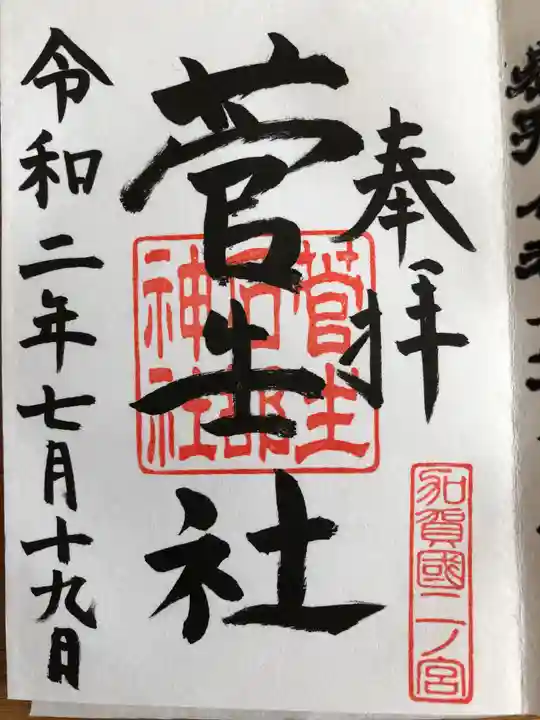 奉拝
加賀國二ノ宮
菅生社
菅生
石部
神社
令和二年七月十九日